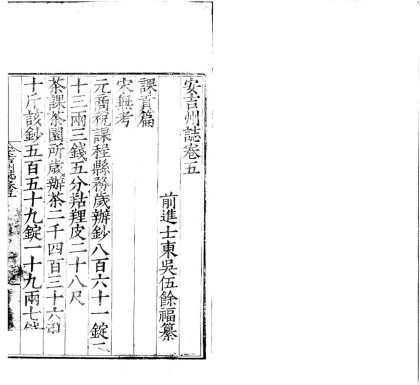 安吉州誌卷五
前進士東吳伍餘福纂
課貢篇
宋無考
元商稅課程縣務歲辦鈔八百六十一錠二
十三兩三錢五分羖䍽皮二十八尺
茶課茶園所歲辦茶二千四百三十六引
十斤該鈔五百五十九錠一十九兩七錢